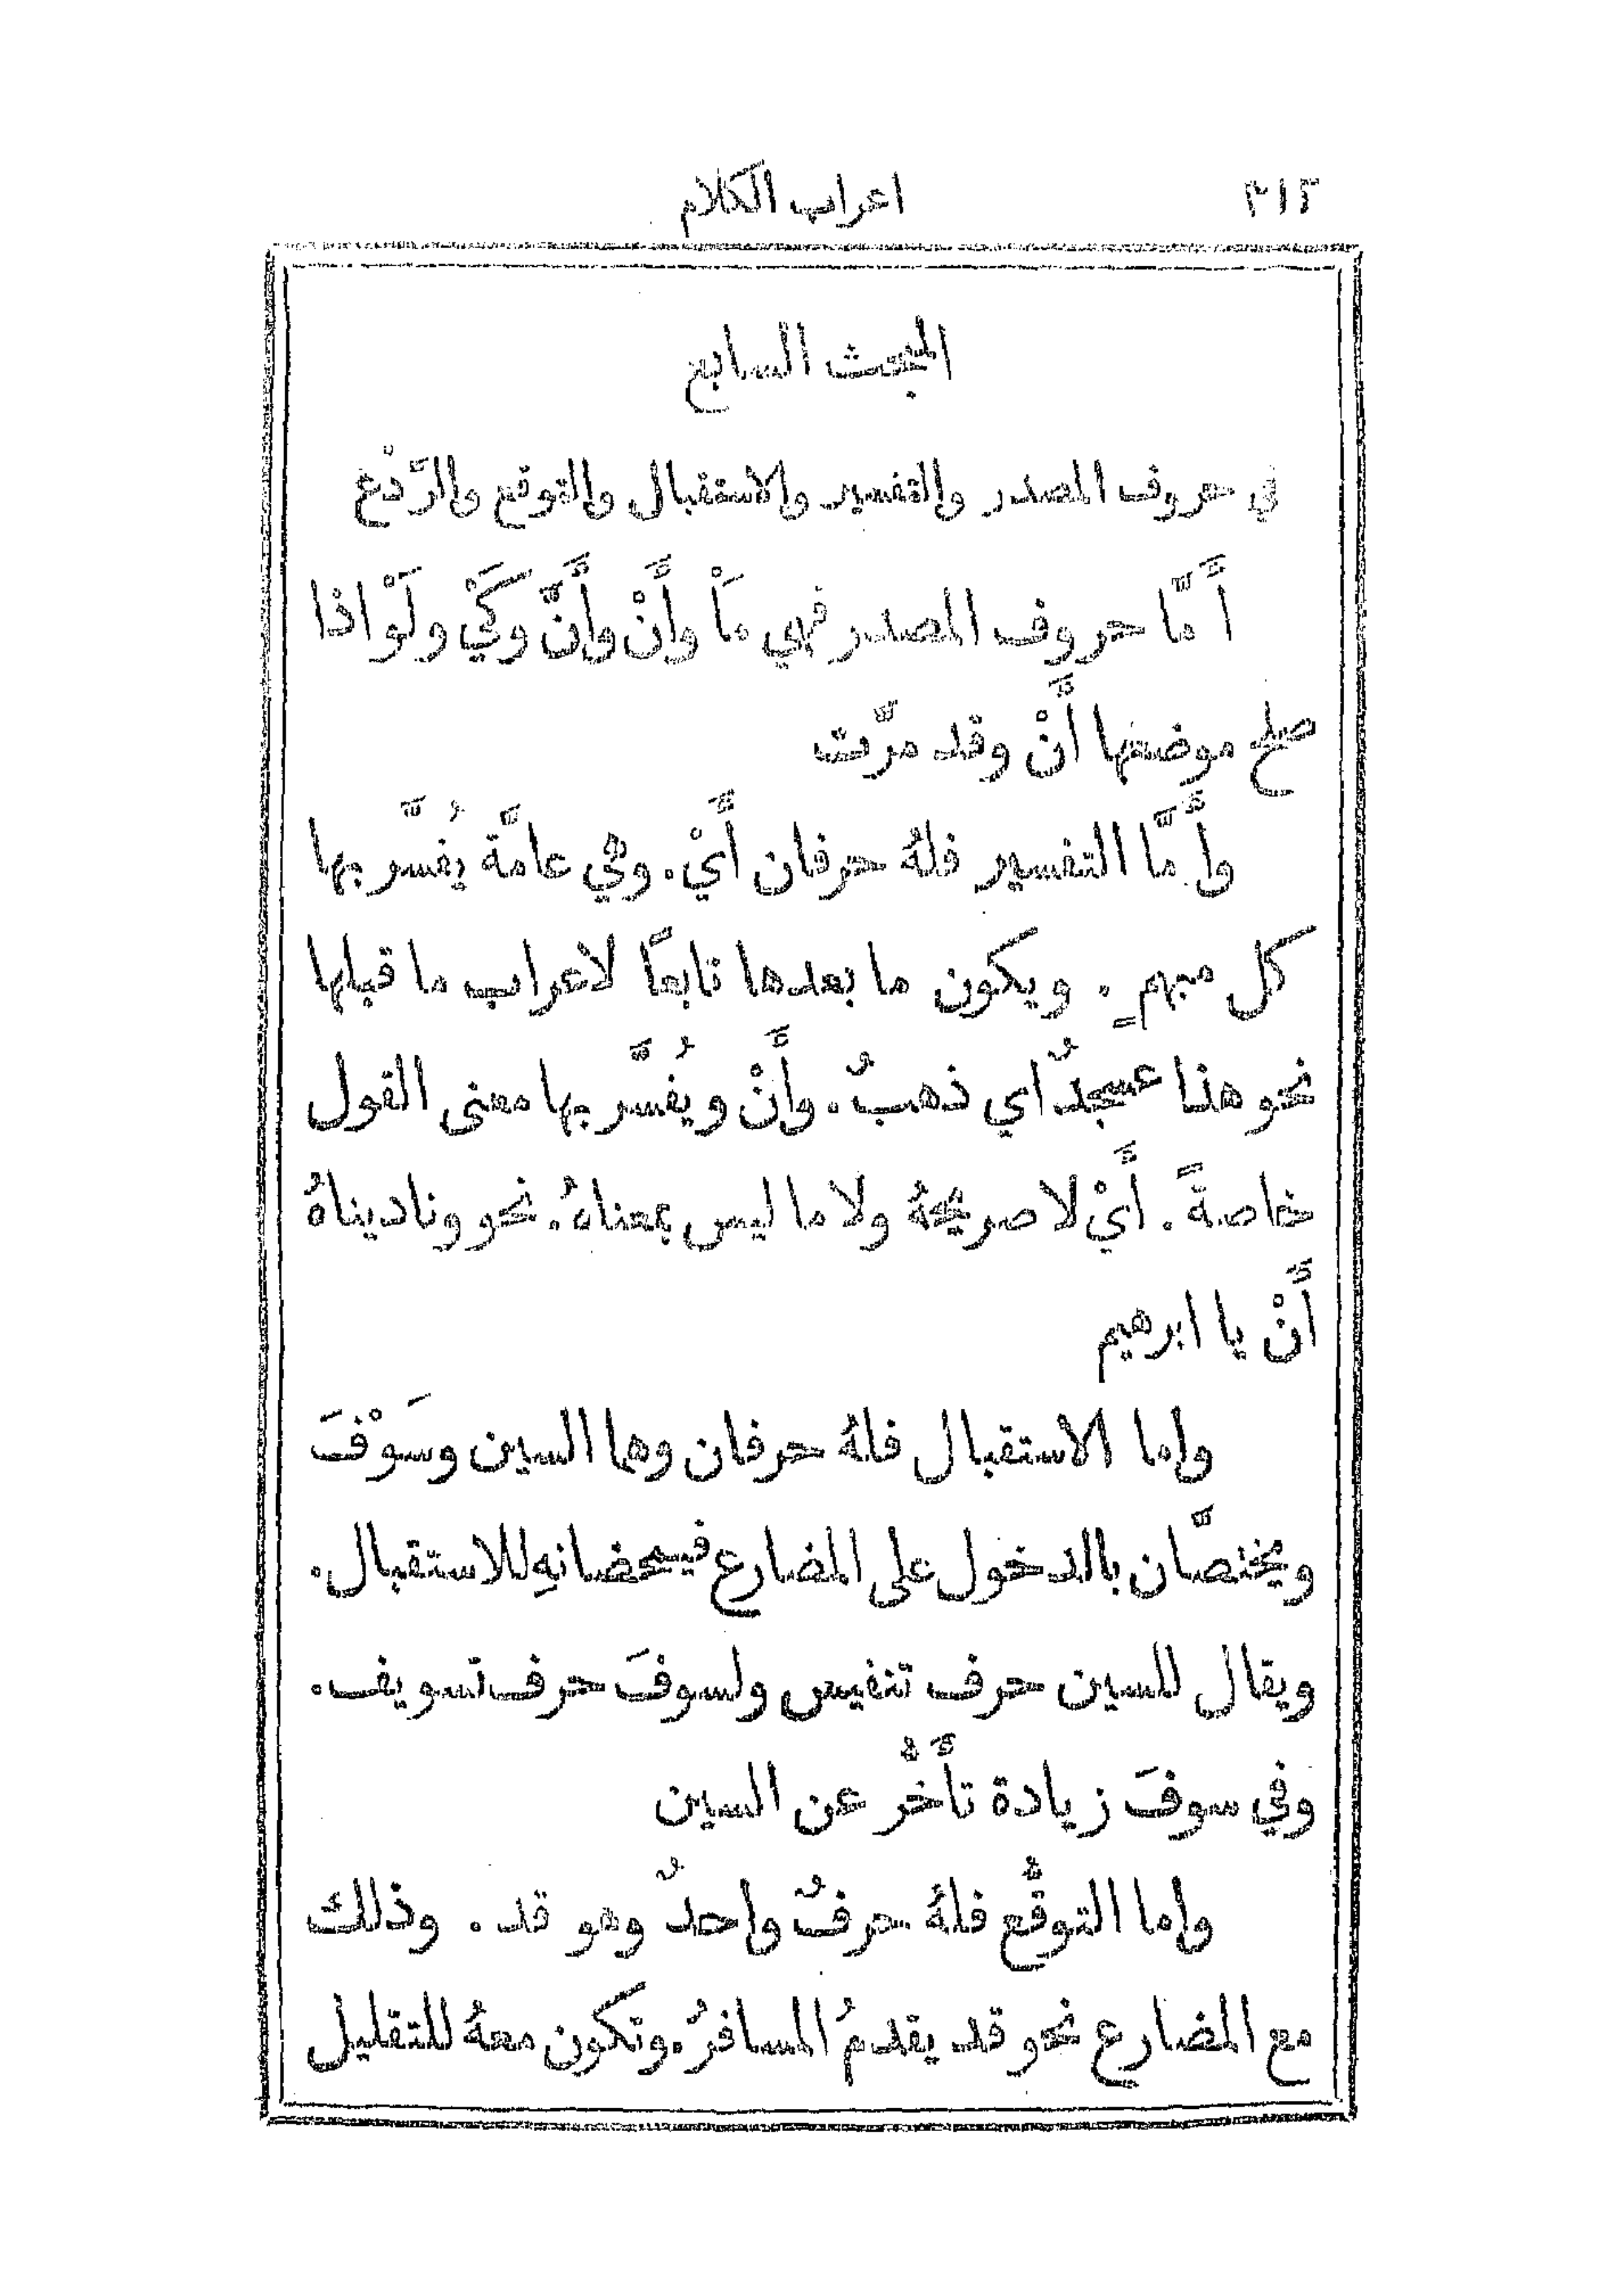 ٣١٢
اعراب الكلام
المبحث السابع
في حروف المصدر والتفسير والاستقبال والتوقع والرَّدْع
أَمَّا حروف المصدر فهي مَاْ وأَنْ وأَنَّ وكَيْ ولَوْ اذا
صلح موضعها أَنْ وقد مرَّت
وأَمَّا التفسير فلهُ حرفان أَيْ. وهي عامَّة يُفسَّر بها
كل مبهمٍ. ويكون ما بعدها تابعًا لاعراب ما قبلها
نحو هذا عسجدٌ اي ذهبٌ. وأَنْ ويُفسَّر بها معنى القول
خاصةً. أَيْ لا صريحهُ ولا ما ليس بمعناهُ. نحو وناديناهُ
أَنْ يا ابرهيم
واما الاستقبال فلهُ حرفان وهما السين وسَوْفَ
ويختصَّان بالدخول على المضارع فيمحضانهِ للاستقبال.
ويقال للسين حرف تنفيس ولسوفَ حرف تسويف.
وفي سوفَ زيادة تأَخُّر عن السين
واما التوقُّع فلهُ حرفٌ واحدٌ وهو قد. وذلك
مع المضارع نحو قد يقدمُ المسافرُ. وتكون معهُ للتقليل